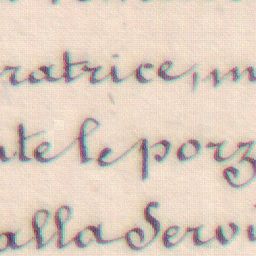 ratrice, m
te le porz
alla Servi